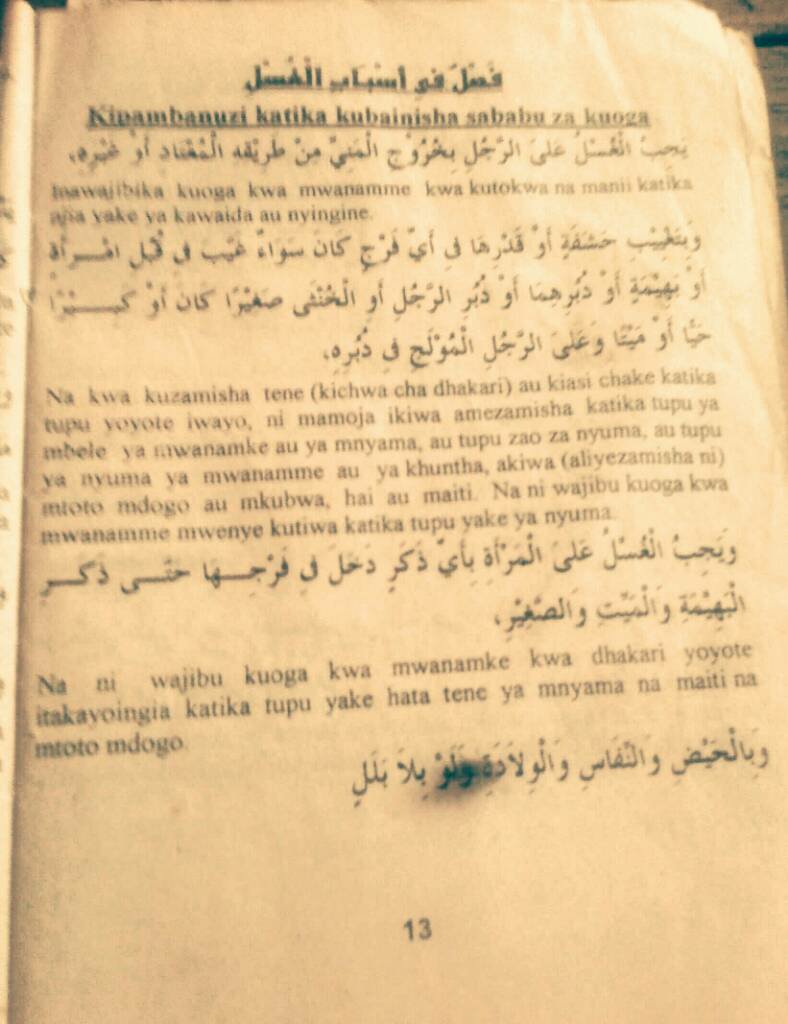 فَصْلٌ فِي أَسْبَابِ الْغُسْلِ
Kipambanuzi katika kubainisha sababu za kuoga
يَجِبُ الْغُسْلُ عَلَى الرَّجُلِ بِخُرُوْجِ الْمَنِيِّ مِنْ طَرِيْقِهِ الْمُعْتَادِ أَوْ غَيْرِهِ،
Inawajibika kuoga kwa mwanamme kwa kutokwa na manii katika
njia yake ya kawaida au nyingine.
وَبِتَغْيِيْبِ حَشَفَةٍ أَوْ قَدْرِهَا فِي أَيِّ فَرْجٍ كَانَ سَوَاءٌ غَيَّبَ فِي قُبُلِ امْرَأَةٍ
أَوْ بَهِيْمَةٍ أَوْ دُبُرِهِمَا أَوْ دُبُرِ الرَّجُلِ أَوِ الْخُنْثَى صَغِيْرًا كَانَ أَوْ كَبِيْرًا
حَيًّا أَوْ مَيْتًا وَعَلَى الرَّجُلِ الْمُوْلَجِ فِي دُبُرِهِ،
Na kwa kuzamisha tene (kichwa cha dhakari) au kiasi chake katika
tupu yoyote iwayo, ni mamoja ikiwa amezamisha katika tupu ya
mbele ya mwanamke au ya mnyama, au tupu zao za nyuma, au tupu
ya nyuma ya mwanamme au ya khuntha, akiwa (aliyezamisha ni)
mtoto mdogo au mkubwa, hai au maiti. Na ni wajibu kuoga kwa
mwanamme mwenye kutiwa katika tupu yake ya nyuma.
وَيَجِبُ الْغُسْلُ عَلَى الْمَرْأَةِ بِأَيِّ ذَكَرٍ دَخَلَ فِي فَرْجِهَا حَتَّى ذَكَرِ
الْبَهِيْمَةِ وَالْمَيِّتِ وَالصَّغِيْرِ،
Na ni wajibu kuoga kwa mwanamke kwa dhakari yoyote
itakayoingia katika tupu yake hata tene ya mnyama na maiti na
mtoto mdogo.
وَبِالْحَيْضِ وَالنِّفَاسِ وَالْوِلاَدَةِ وَلَوْ بِلاَ بَلَلٍ
13